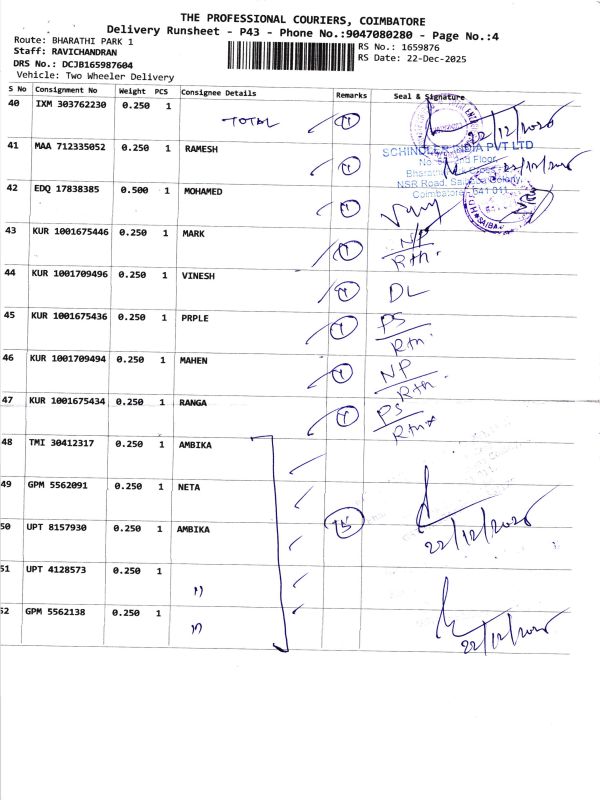 THE PROFESSIONAL COURIERS, COIMBATORE
Delivery Runsheet - P43 - Phone No.:9047080280 - Page No.:4
Route: BHARATHI PARK 1
Staff: RAVICHANDRAN
DRS No.: DCJB165987604
Vehicle: Two Wheeler Delivery
RS No.: 1659876
RS Date: 22-Dec-2025
S No Consignment No Weight PCS Consignee Details Remarks Seal & Signature
40 IXM 303762230 0.250 1 TOTAL 1 22/12/2025
41 MAA 712335052 0.250 1 RAMESH 1 22/12/2025
SCHINDLER INDIA PVT LTD
2nd Floor,
NSR Road, Saibaba Colony,
Coimbatore - 641 011.
42 EDQ 17838385 0.500 1 MOHAMED 1
43 KUR 1001675446 0.250 1 MARK 1 NP
Rtn.
44 KUR 1001709496 0.250 1 VINESH 1 DL
45 KUR 1001675436 0.250 1 PRPLE 1 PS
Rtn.
46 KUR 1001709494 0.250 1 MAHEN 1 NP
Rtn.
47 KUR 1001675434 0.250 1 RANGA 1 PS
Rtn
48 TMI 30412317 0.250 1 AMBIKA
49 GPM 5562091 0.250 1 NETA
50 UPT 8157930 0.250 1 AMBIKA 5 22/12/2025
51 UPT 4128573 0.250 1 "
52 GPM 5562138 0.250 1 " 22/12/2025